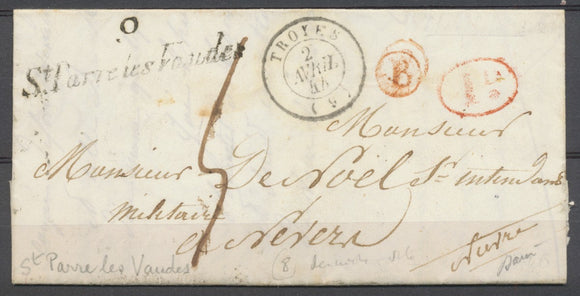 O
St Parre les Vaudes
TROYES
2
AVRIL
(9)
B
Monsieur
Monsieur De Noël Ss intendant
militaire
à Nevers
Nièvre
St Parre les Vaudes
(8